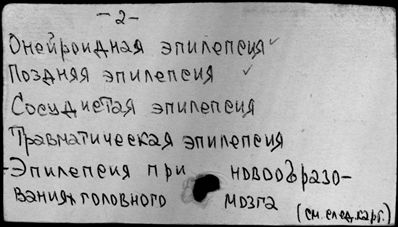 - 2 -
Онейроидная эпилепсия ✓
Поздняя эпилепсия ✓
Сосудистая эпилепсия
Травматическая эпилепсия
-Эпилепсия при новообразо-
ваниях головного мозга
(см. след. карт.)